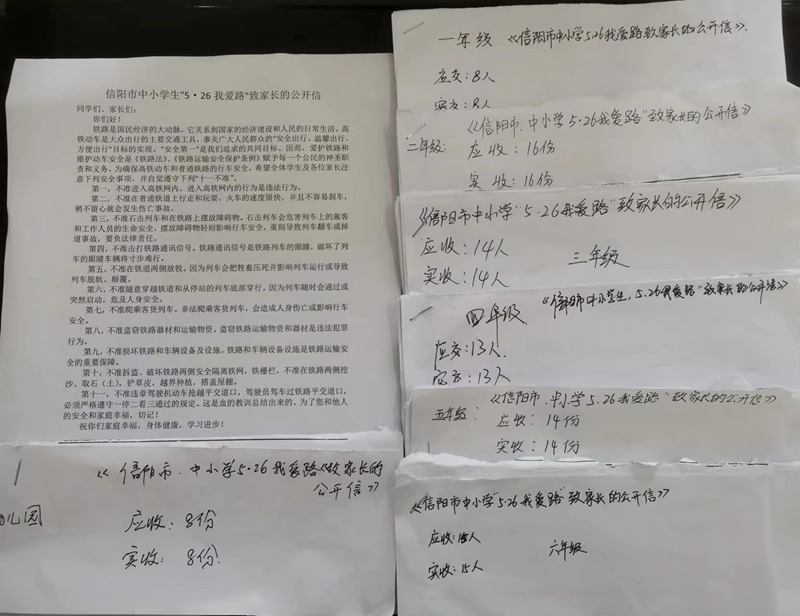 信阳市中小学生"5·26我爱路"致家长的公开信
同学们、家长们：
你们好！
铁路是国民经济的大动脉，它关系到国家的经济建设和人民的日常生活。高
铁动车是大众出行的主要交通工具，事关广大人民群众的"安全出行、温馨出行、
方便出行"目标的实现。"安全第一"是我们追求的共同目标。因而，爱护铁路和
维护动车安全是《铁路法》、《铁路运输安全保护条例》赋予每一个公民的神圣职
责和义务。为确保高铁动车和普通铁路的行车安全，希望全体学生及各位家长注
意下列安全事项，并自觉遵守下列"十一不准"。
第一，不准进入高铁网内，进入高铁网内的行为是违法行为。
第二，不准在普通铁路上行走和玩耍，火车的速度很快，并且不容易刹车，
稍不留心就会发生伤亡事故。
第三，不准石击列车和在铁路上摆放障碍物。石击列车会危害列车上的旅客
和工作人员的生命安全，摆放障碍物轻则影响行车安全，重则导致列车翻车或掉
道事故，要负法律责任。
第四，不准击打铁路通讯信号。铁路通讯信号是铁路列车的眼睛，破坏了列
车的眼睛车辆将寸步难行。
第五，不准在铁道两侧放牧。因为列车会把牲畜压死并影响列车运行或导致
列车脱轨、颠覆。
第六，不准随意穿越铁道和从停站的列车底部穿行。因为列车随时会通过或
突然启动，危及人身安全。
第七，不准爬乘客货列车。非法爬乘客货列车，会造成人身伤亡或影响行车
安全。
第八，不准盗窃铁路器材和运输物资。盗窃铁路运输物资和器材是违法犯罪
行为。
第九，不准损坏铁路和车辆设备及设施。铁路和车辆设备设施是铁路运输安
全的重要保障。
第十，不准拆盗、破坏铁路两侧安全隔离铁网、铁栅栏，不准在铁路两侧挖
沙、取石（土），铲草皮，越界种植，搭盖屋棚。
第十一，不准违章驾驶机动车抢越平交道口，驾驶员驾车过铁路平交道口，
必须严格遵守一停二看三通过的规定。这是血的教训总结出来的。为了您和他人
的安全和家庭幸福，切记！
祝你们家庭幸福，身体健康，学习进步！
《信阳市.中小学5·26我爱路《致家长的
公开信》
儿园
应收：8份
实收：8份.
一年级 《信阳市中小学5·26我爱路致家长的公开信》.
应交：8人
实交：8人
《信阳市.中小学5·26我爱路"致家长的公开信》
二年级：
应收：16份
实收：16份
《信阳市中小学"5·26我爱路"致家长的公开信》
应收：14人
三年级
实收：14人
四年级 《信阳市中小学生.5·26我爱路"致家长的公开信》
应交：13人.
实交：13人
五年级： 《信阳市.中小学5·26我爱路"致家长的公开信》
应收：14份
实收：14份
《信阳市中小学"5·26我爱路"致家长的公开信》
应收：15人
六年级
实收：15人